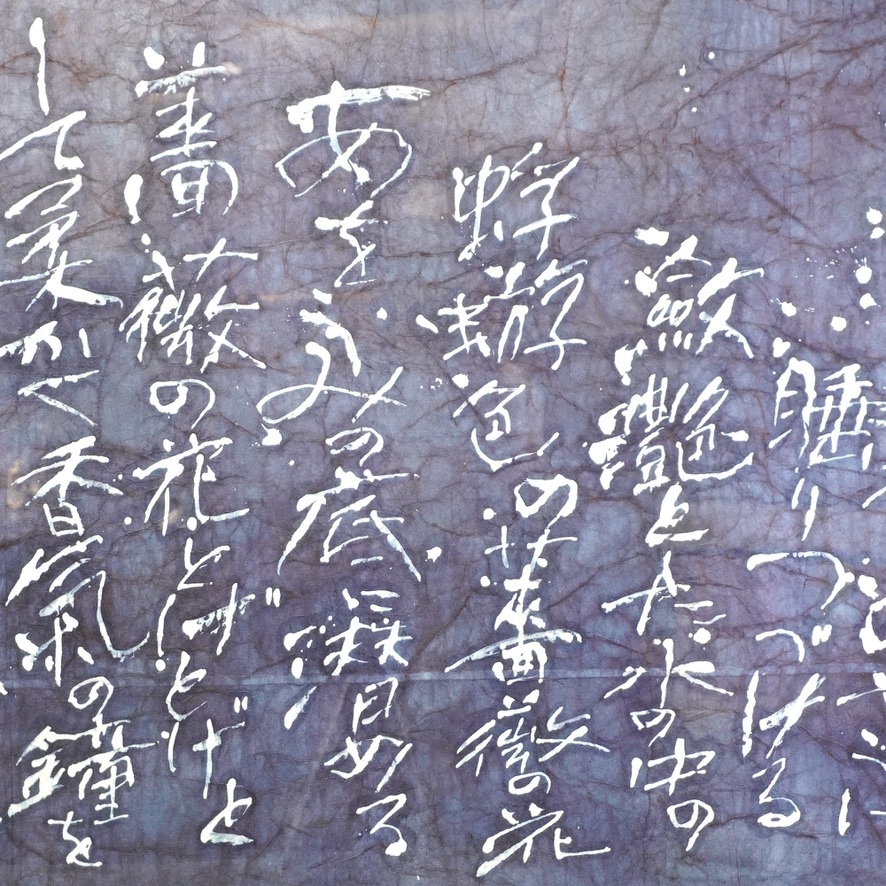 睡りつづける
瀲灔とした水の中の
蜉蝣色の薔薇の花
あをうみの底 める
薔薇の花とげとげと
して柔かく香氣の鐘を